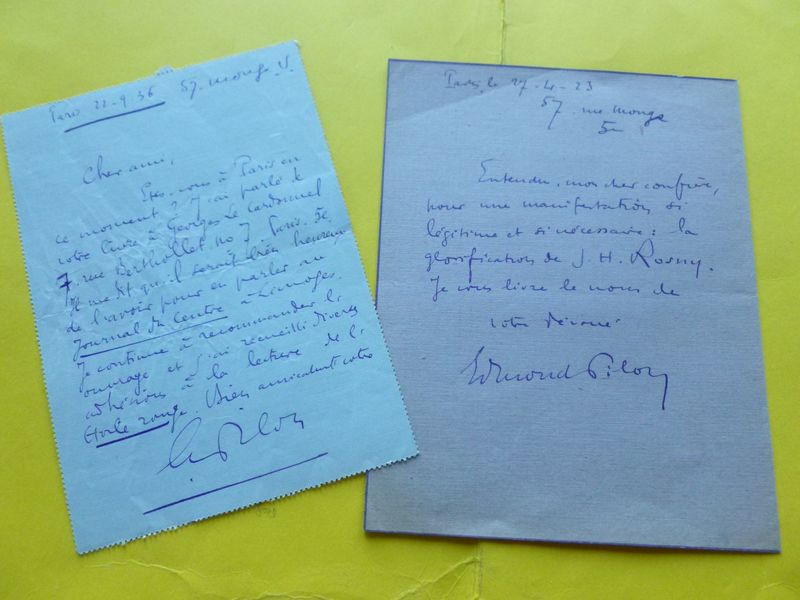 Paris 22-9-36 57. Monge. V.
Cher ami,
Etes-vous à Paris en
ce moment ? J'ai parlé de
votre livre à Georges Le Cardonnel
7. rue Berthollet no 7 Paris. Ve
Il me dit qu'il serait bien heureux
de l'avoir pour en parler au
Journal du Centre à Limoges.
Je continue à recommander le
ouvrage et j'ai recueilli diverses
adhésions à la lecture de l'
Etoile rouge. Bien amicalement votre
E. Pilon
Paris, le 27-4-23
57 rue Monge
5e
Entendu, mon cher confrère,
pour une manifestation si
légitime et si nécessaire : la
glorification de J. H. Rosny.
Je vous livre le nom de
votre dévoué
Edmond Pilon